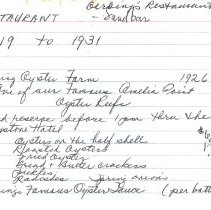 Gerding's Restaurant
STAURANT - Sandbar
19 to 1931
ing Oyster Farm 1926
One of our Famous Amelia Point
Oyster Reefs
d reserve before 1 pm thru the
Hotel
Oysters on the half shell
Roasted Oysters
Fried Oyster
Bread + Butter crackers
Pickles
Radishes Spring onions
ings Famous Oyster Sauce (per bott